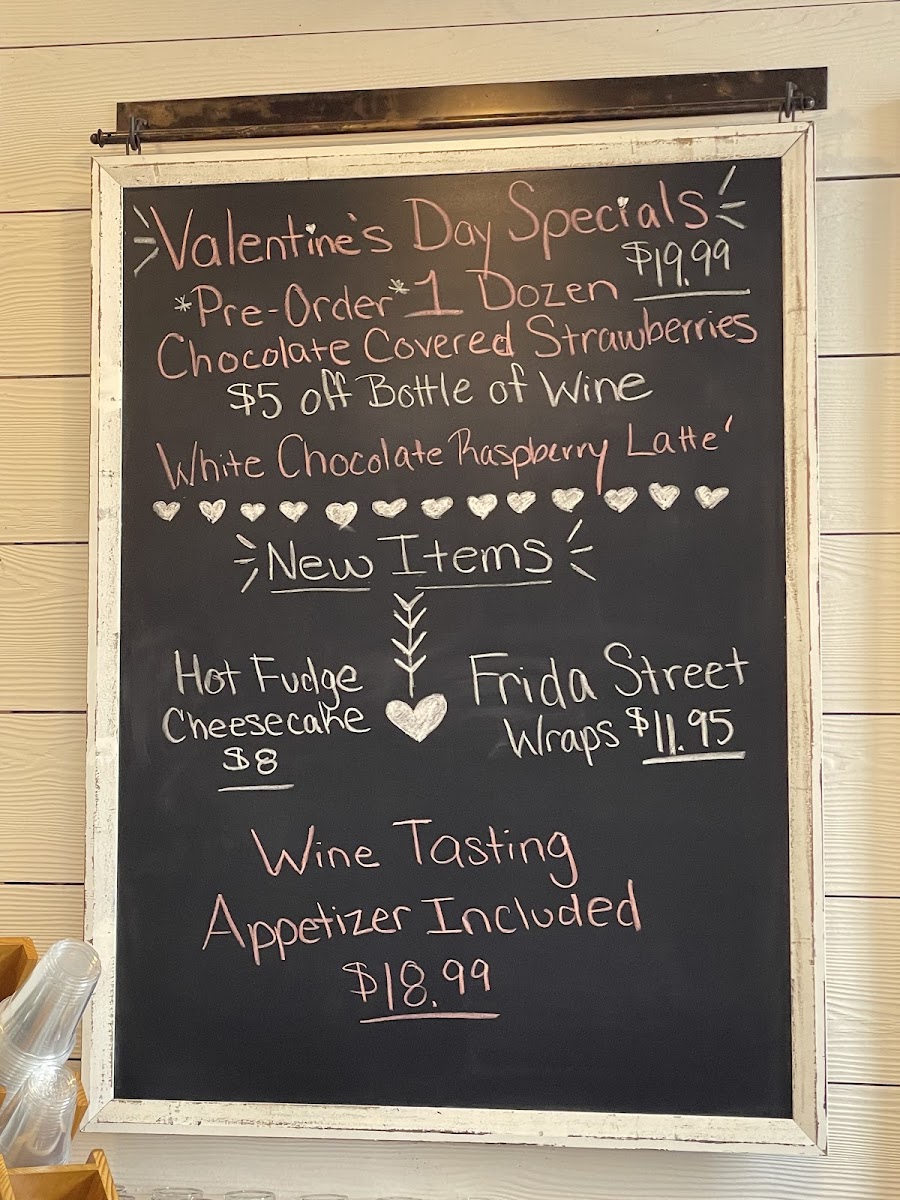 Valentine's Day Specials
*Pre-Order* 1 Dozen $19.99
Chocolate Covered Strawberries
$5 off Bottle of Wine
White Chocolate Raspberry Latte'
New Items
Hot Fudge
Cheesecake
$8
Frida Street
Wraps $11.95
Wine Tasting
Appetizer Included
$18.99